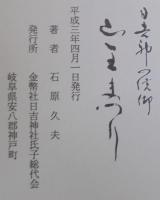 日吉神の信仰
山王まつり
平成三年四月一日発行
著者 石原久夫
発行所 金幣社日吉神社氏子総代会
岐阜県安八郡神戸町